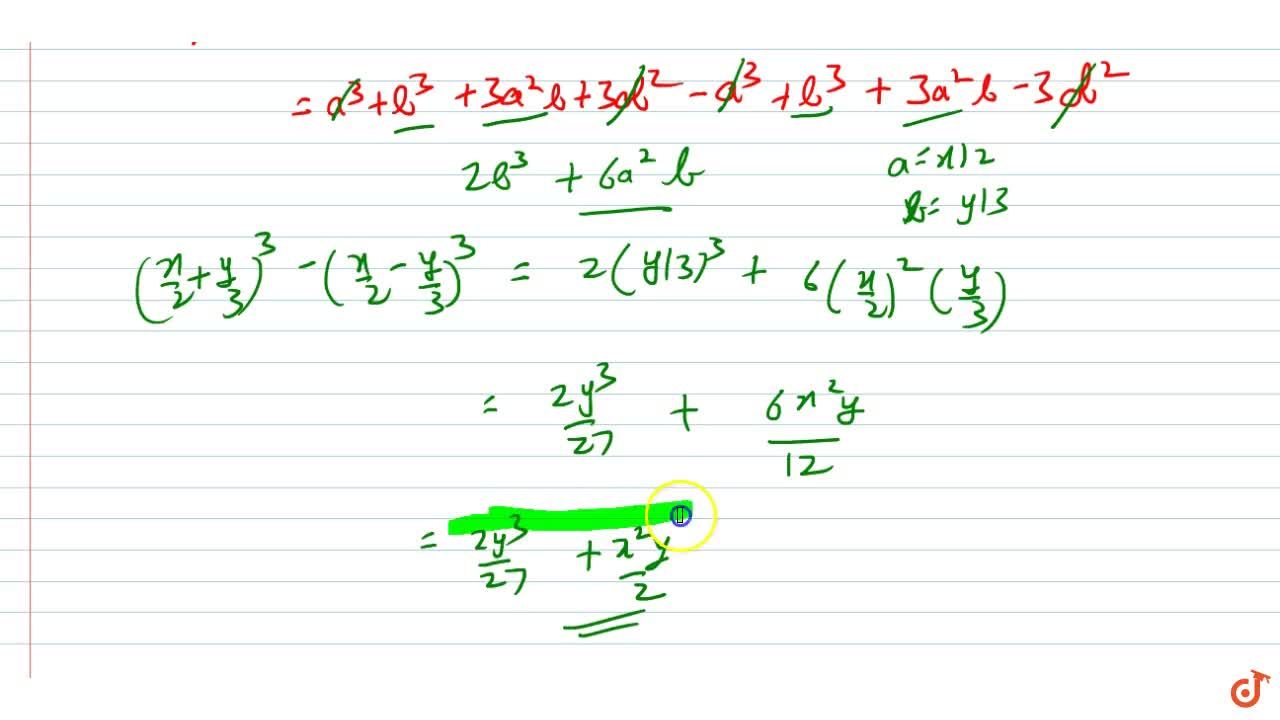 = a³ + b³ + 3a²b + 3ab² - a³ + b³ + 3a²b - 3ab²
2b³ + 6a²b
a = x/2
b = y/3
(x/2 + y/3)³ - (x/2 - y/3)³ = 2(y/3)³ + 6(x/2)²(y/3)
= 2y³/27 + 6x²y/12
= 2y³/27 + x²y/2